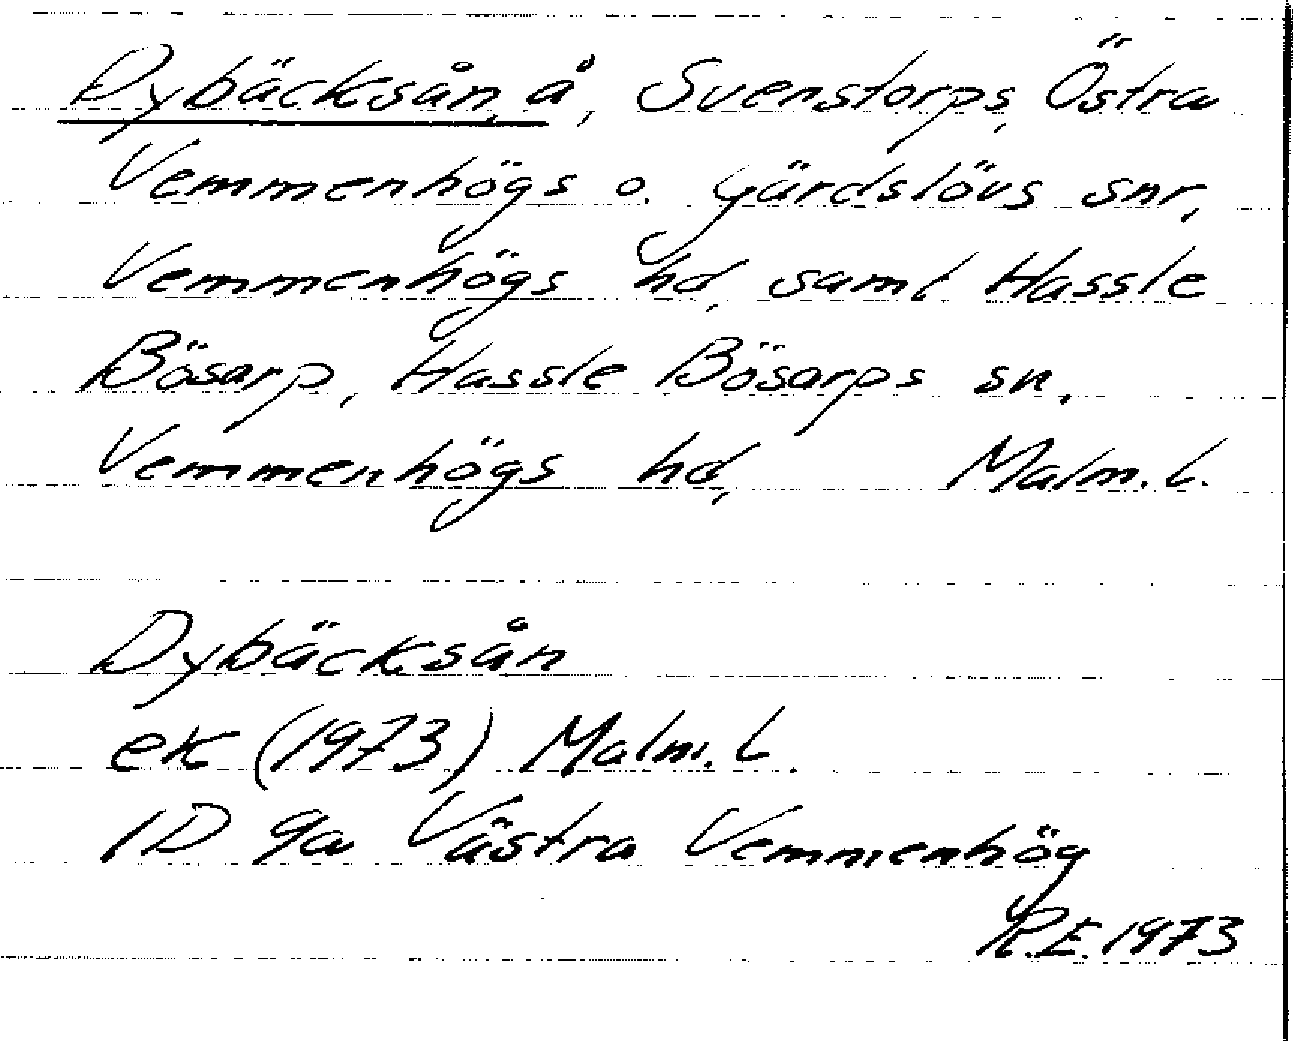 Dybäcksån, å, Svenstorps, Östra
Vemmenhögs o. Gärdslövs snr,
Vemmenhögs hd, samt Hassle
Bösarp, Hassle Bösarps sn,
Vemmenhögs hd, Malm. l.
Dybäcksån
ek (1973) Malm. L
1D 9a Västra Vemmenhög
R.E. 1973